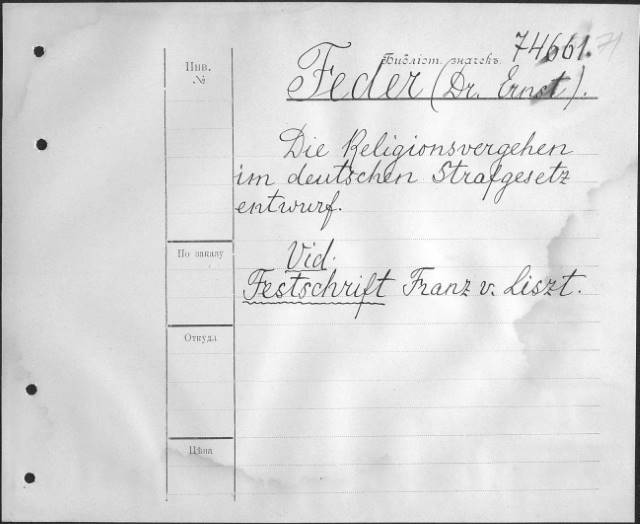 Библіот. значекъ 74661.
71
Инв.
№
Feder (Dr. Ernst).
Die Religionsvergehen
im deutschen Strafgesetz
entwurf.
По заказу
Vid.
Festschrift Franz v. Liszt.
Откуда
Цѣна